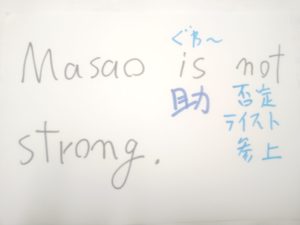 ぐわ〜
Masao is not
助 否定
ライスト
参上
strong.